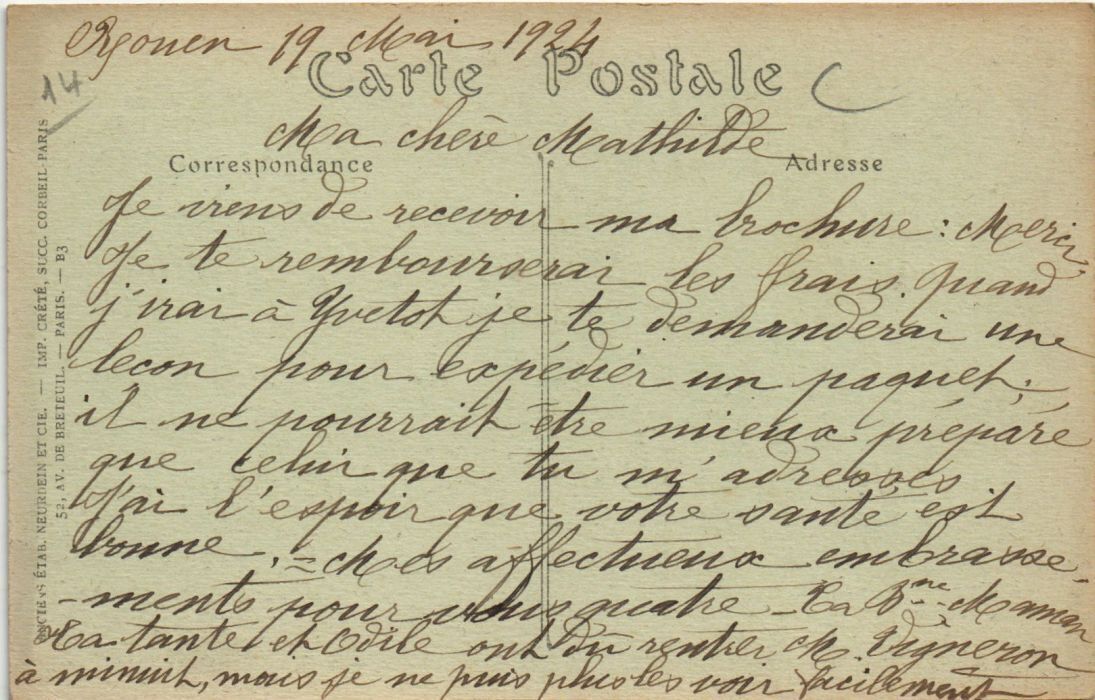 Rouen 19 Mai 1924
14
Carte Postale
Ma chère Mathilde
Correspondance
Adresse
Je viens de recevoir ma brochure : Merci
Je te rembourserai les frais quand
j'irai à Yvetot je te demanderai une
lecon pour expédier un paquet ;
il ne pourrait être mieux préparé
que celui que tu m'adresses
J'ai l'espoir que votre santé est
bonne . = Mes affectueux embrasse-
-ments pour vous quatre - Ta Bne Maman
Ta tante et Odile ont dû rentrer M. Vigneron
à minuit, mais je ne puis plus les voir facilement
ANCIENS ÉTAB. NEURDEIN ET CIE. — IMP. CRÉTÉ, SUCC. CORBEIL-PARIS
52, AV. DE BRETEUIL. — PARIS. — B3